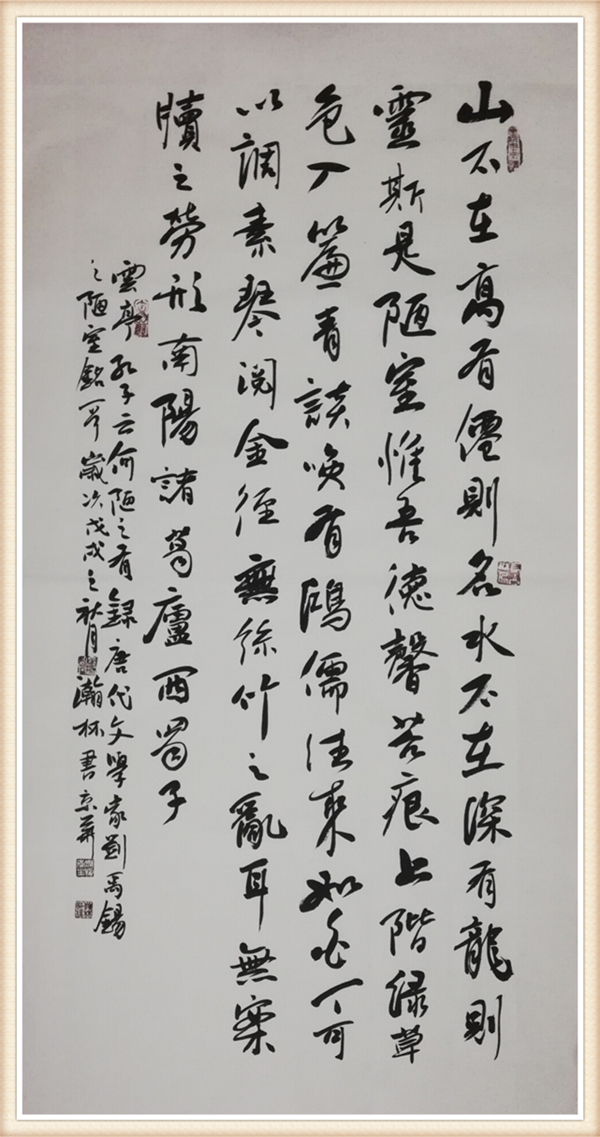 山不在高有僊則名水不在深有龍則
靈斯是陋室惟吾德馨苔痕上階绿草
色入簾青談咲有鴻儒往來无白丁可
以調素琴閱金經無絲竹之亂耳無案
牘之勞形南陽諸葛廬西蜀子
雲亭孔子云何陋之有錄唐代文學家劉禹錫
之陋室銘一首歲次戊戌之秋月瀚林書京華